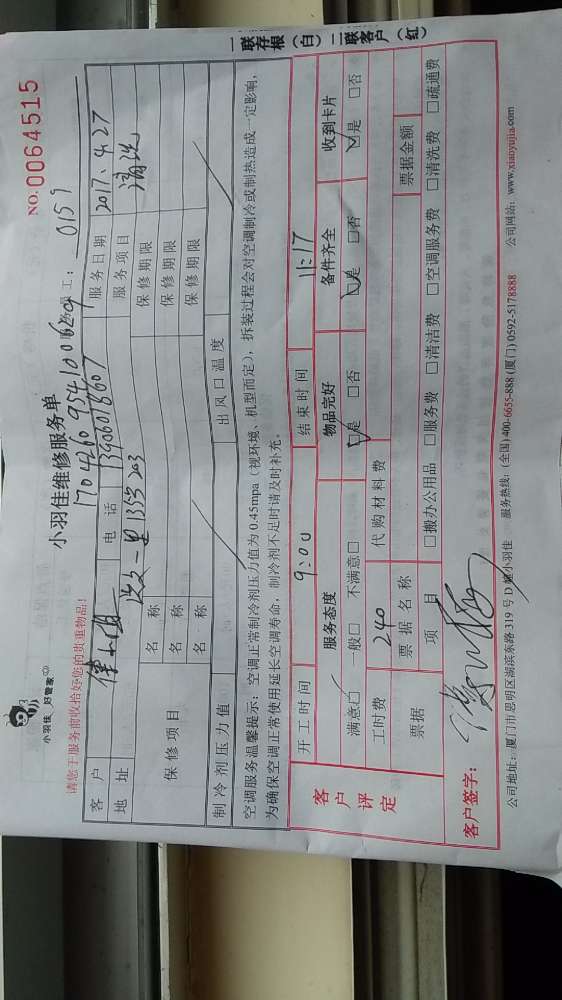 小羽佳 好管家
小羽佳维修服务单
NO.0064515
请您于服务前收拾好您的贵重物品!
工: 0159
客户 电话 13906018607 服务日期 2017.4.27
地址 135号203 服务项目 清洗
保修项目 名称 保修期限
名称 保修期限
名称 保修期限
制冷剂压力值 出风口温度
空调服务温馨提示:空调正常制冷剂压力值为 0.45mpa(视环境、机型而定),拆装过程会对空调制冷或制热造成一定影响,
为确保空调正常使用延长空调寿命,制冷剂不足时请及时补充。
客户评定
开工时间 9:00 结束时间 11:17
服务态度 物品完好 备件齐全 收到卡片
满意□ 一般□ 不满意□ □是 □否 □是 □否 □是 □否
工时费 240 代购材料费
票据 票据名称 票据金额
项目 □搬办公用品 □服务费 □清洁费 □空调服务费 □清洗费 □疏通费
客户签字:
公司地址:厦门市思明区湖滨东路 319 号 D 座小羽佳 服务热线:(全国)400-6655-888 (厦门) 0592-5178888 公司网站:www.xiaoyujia.com
一联存根(白) 二联客户(红)